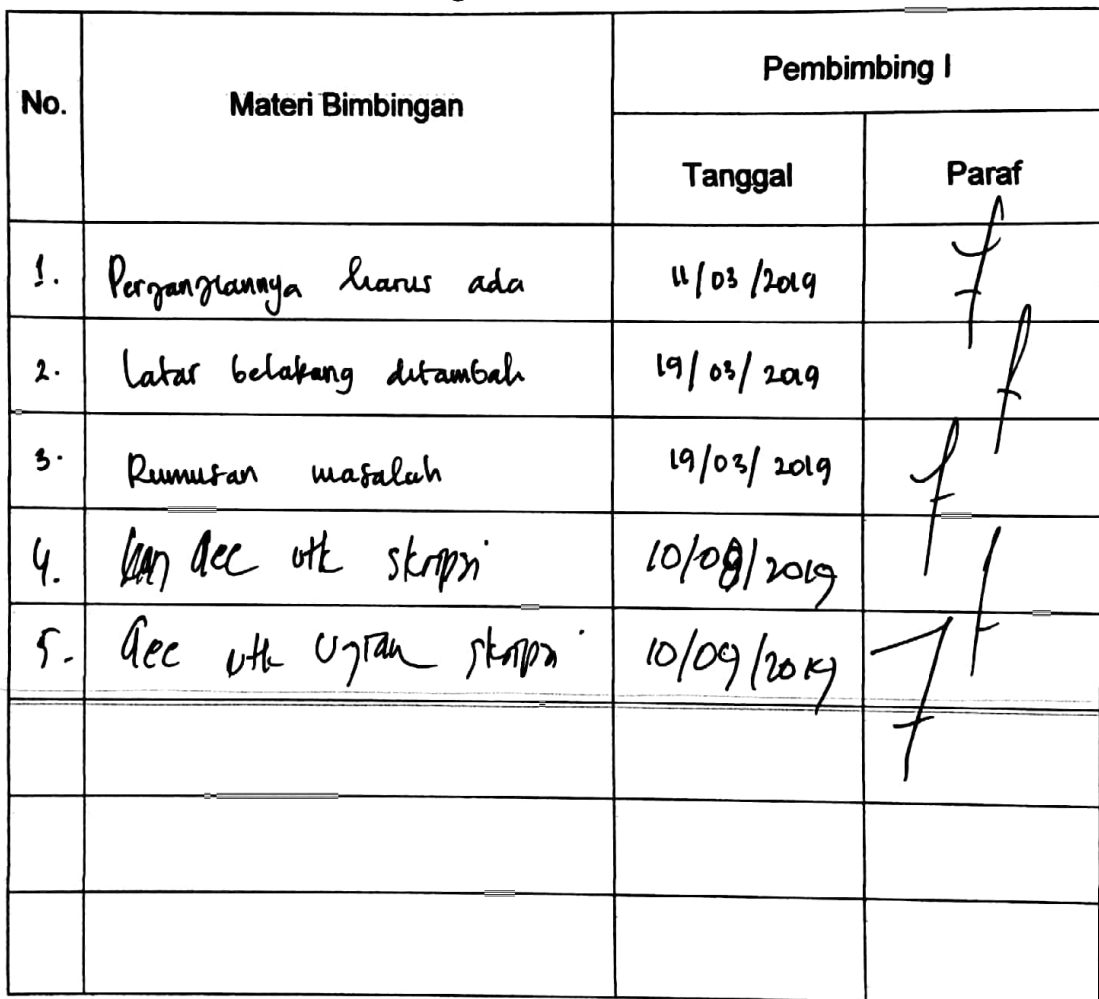 Pembimbing I
No. Materi Bimbingan
Tanggal Paraf
1. Perjanjiannya harus ada 11/03/2019
2. Latar belakang ditambah 19/03/2019
3. Rumusan masalah 19/03/2019
4. acc utk skripsi 10/08/2019
5. acc utk Ujian skripsi 10/09/2019